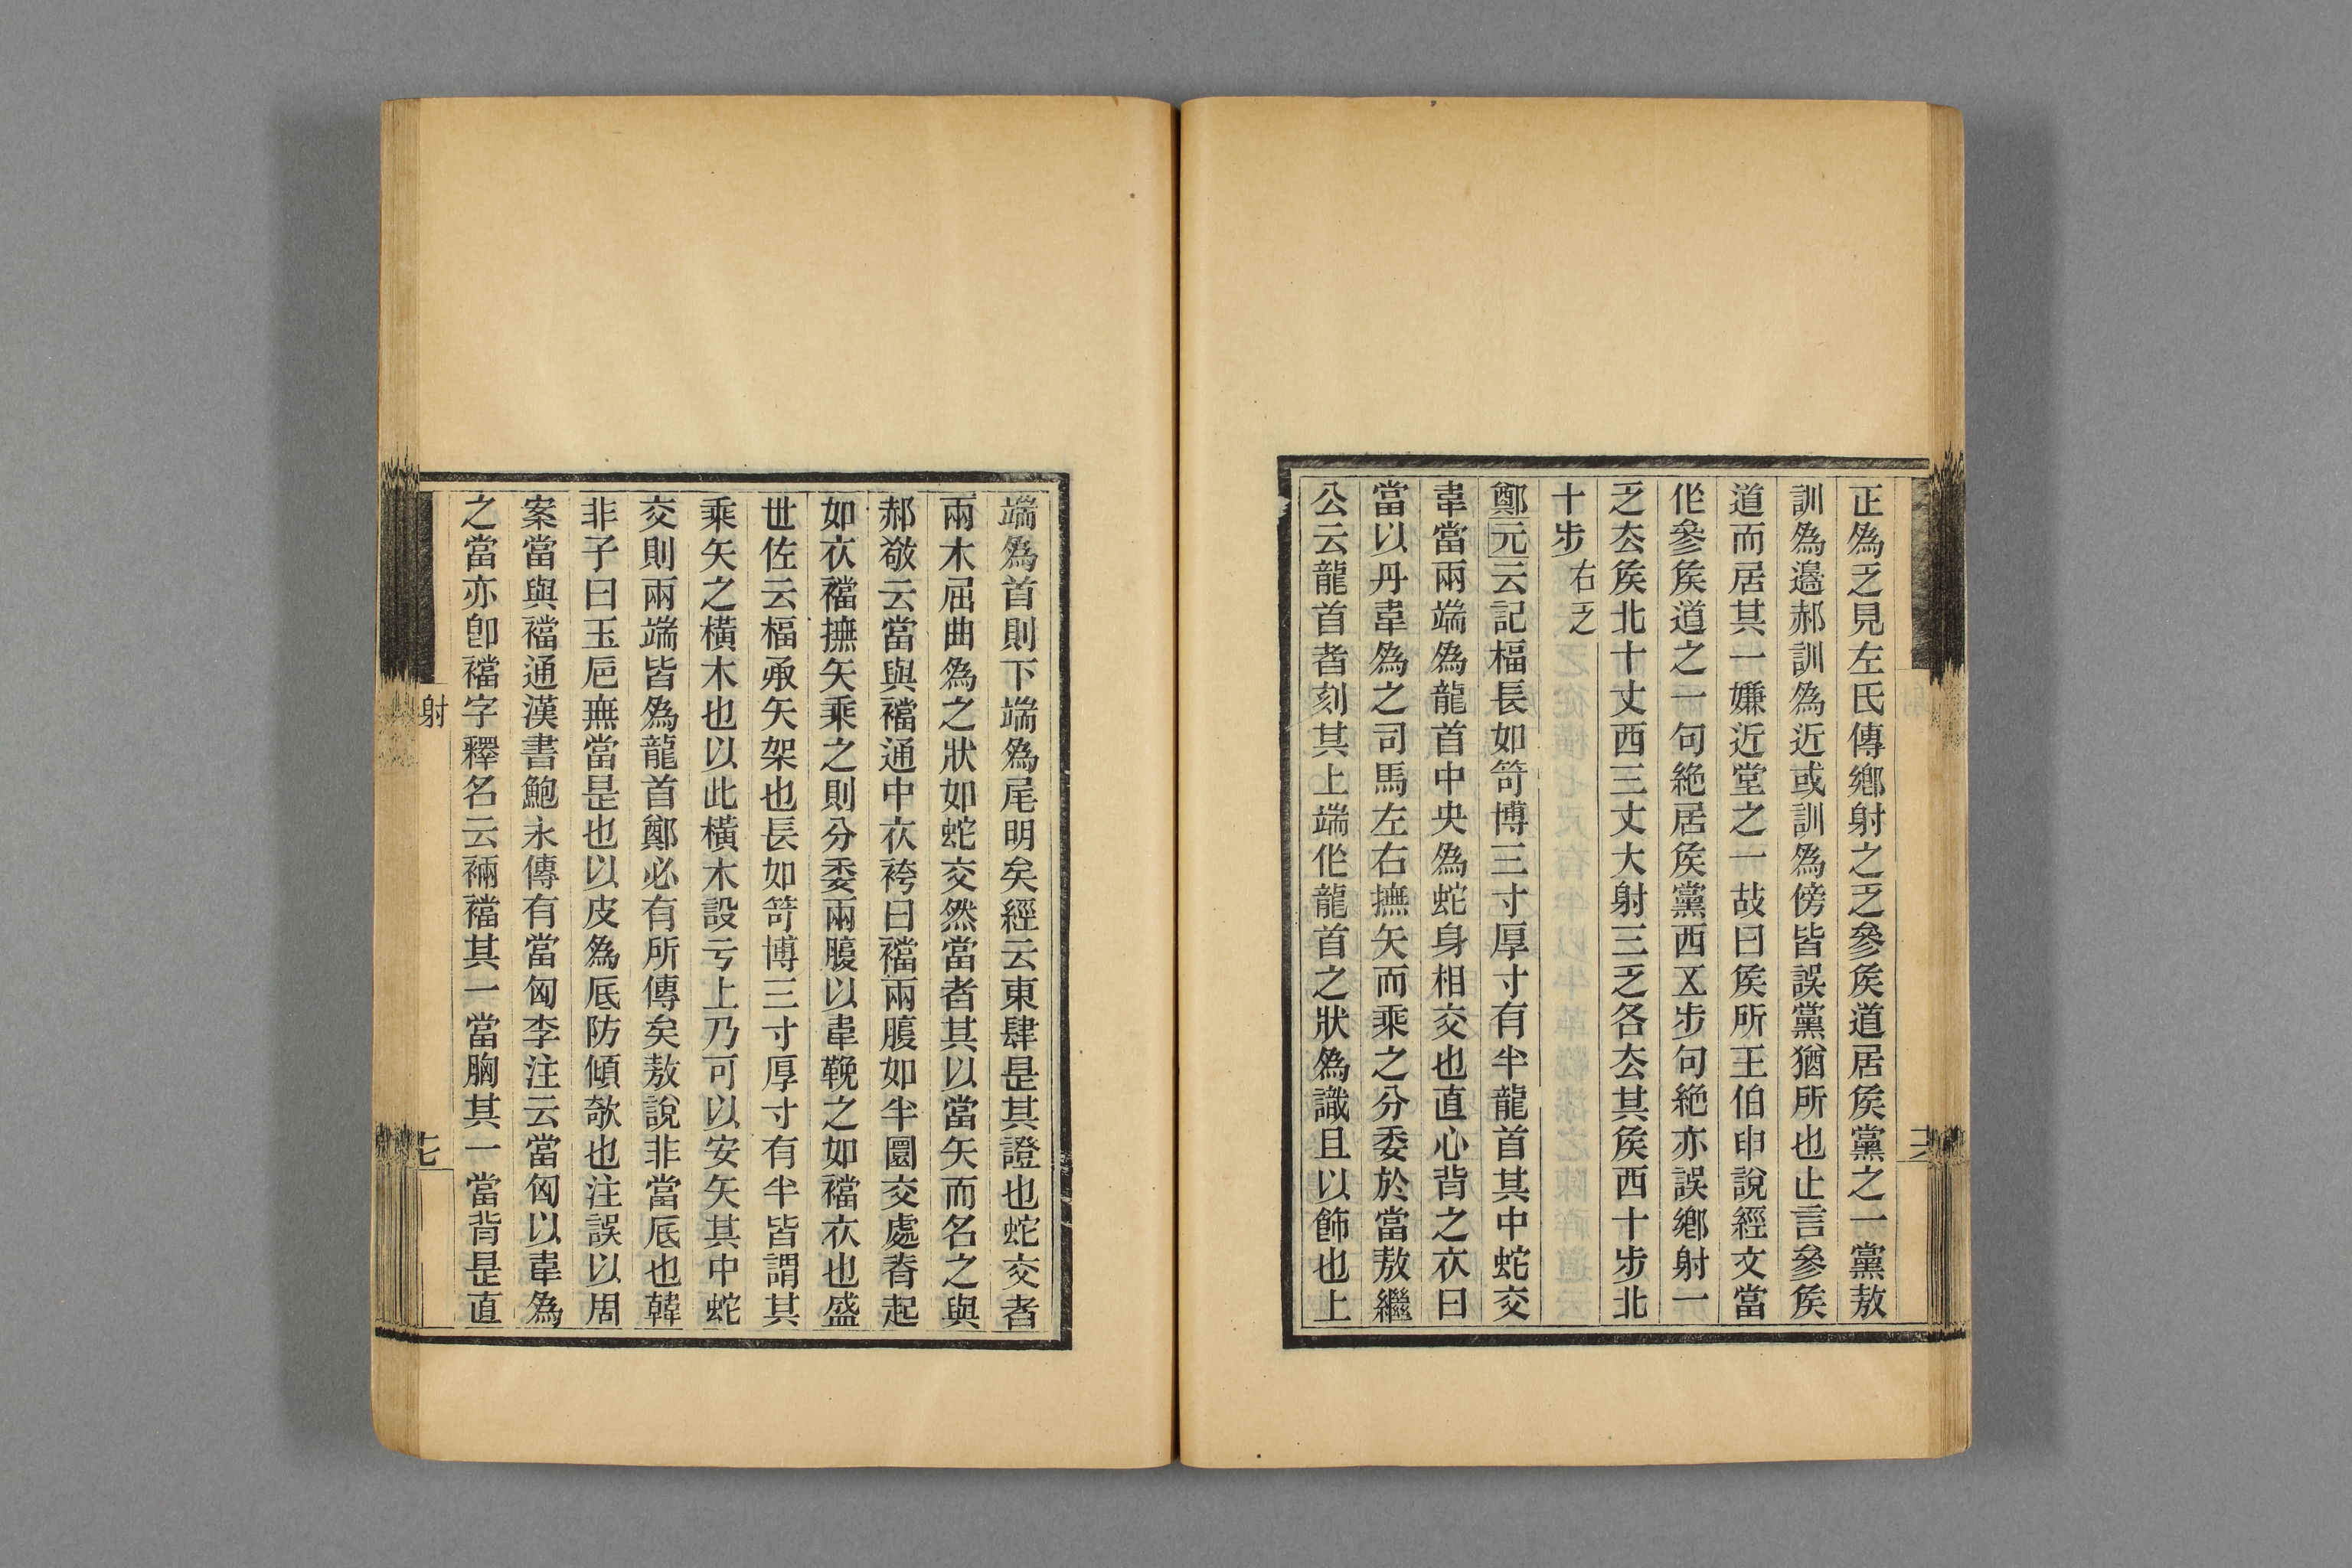 正為乏見左氏傳鄉射之乏參矦道居矦黨之一黨敖
訓為邊郝訓為近或訓為傍皆誤黨猶所也止言參矦
道而居其一嫌近堂之一故曰矦所王伯申說經文當
作參矦道之一句絕居矦黨西五步句絕亦誤鄉射一
乏去矦北十丈西三丈大射三乏各去其矦西十步北
十步 右乏
鄭元云記楅長如笴博三寸厚寸有半龍首其中蛇交
韋當兩端為龍首中央為蛇身相交也直心背之衣曰
當以丹韋為之司馬左右撫矢而乘之分委於當敖繼
公云龍首者刻其上端作龍首之狀為識且以飾也上
端為首則下端為尾明矣經云東肆是其證也蛇交者
兩木屈曲為之狀如蛇交然當者其以當矢而名之與
郝敬云當與襠通中衣袴曰襠兩腹如半圜交處脊起
如衣襠撫矢乘之則分委兩腹以韋鞔之如襠衣也盛
世佐云楅承矢架也長如笴博三寸厚寸有半皆謂其
乘矢之橫木也以此橫木設亏上乃可以安矢其中蛇
交則兩端皆為龍首鄭必有所傳矣敖說非當底也韓
非子曰玉卮無當是也以皮為底防傾欹也注誤以周
案當與襠通漢書鮑永傳有當匈李注云當匈以韋為
之當亦卽襠字釋名云裲襠其一當胸其一當背是直
射